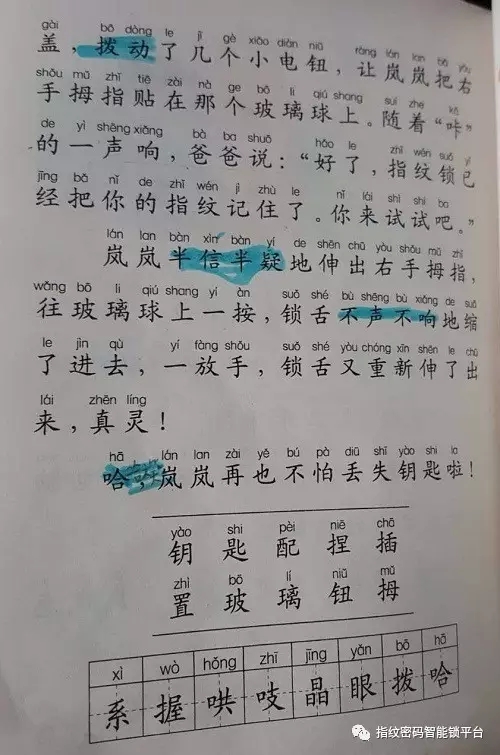 gài bō dòng le jǐ gè xiǎo diàn niǔ ràng lán lan bǎ yòu
盖，拨动了几个小电钮，让岚岚把右
shǒu mǔ zhǐ tiē zài nà ge bō li qiú shang suí zhe kā
手拇指贴在那个玻璃球上。随着“咔”
de yì shēng xiǎng bà ba shuō hǎo le zhǐ wén suǒ yǐ
的一声响，爸爸说：“好了，指纹锁已
jīng bǎ nǐ de zhǐ wén jì zhù le nǐ lái shì shi ba
经把你的指纹记住了。你来试试吧。”
lán lan bàn xìn bàn yí de shēn chū yòu shǒu mǔ zhǐ
岚岚半信半疑地伸出右手拇指，
wǎng bō li qiú shang yí àn suǒ shé bù shēng bù xiǎng de suō
往玻璃球上一按，锁舌不声不响地缩
le jìn qù yí fàng shǒu suǒ shé yòu chóng xīn shēn le chū
了进去，一放手，锁舌又重新伸了出
lái zhēn líng
来，真灵！
hā lán lan zài yě bú pà diū shī yào shi la
哈，岚岚再也不怕丢失钥匙啦！
yào shi pèi niē chā
钥匙配捏插
zhì bō lí niǔ mǔ
置玻璃钮拇
xì wò hǒng zhī jīng yǎn bō hā
系握哄吱晶眼拨哈
指纹密码智能锁平台